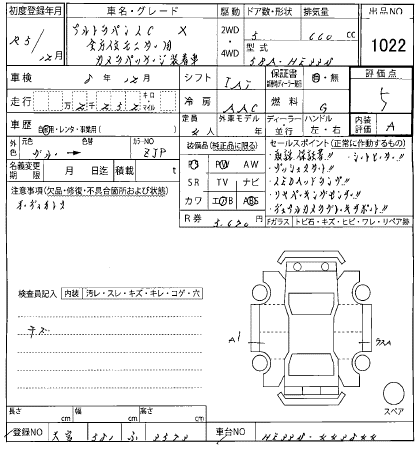 初度登録年月 車名・グレード 駆動 ドア数・形状 排気量 出品NO
R5/12月 アルトラパンLC X 2WD 5 660cc
全方位モニター用 4WD 型式 1022
カメラパッケージ装着車 5BA-HE33S
車検 8年12月 シフト IAT 保証書 有・無 評価点
走行 万 キロ マイル 冷房 AAC 燃料 G 5
車歴 自家用・レンタ・事業用( ) 定員 4人 外車モデル ディーラー 並行 ハンドル 左・右 内装評価 A
外色 元色 色替 カラーNO ZJP
装備品(純正品に限る) セールスポイント(正常に作動するもの)
名義変更期限 月 日迄 積載 t
PS PW AW
取説 保証書!! シートヒーター!!
プッシュスタート!!
SR TV ナビ LEDヘッドランプ!!
注意事項(欠品・修復・不具合箇所および状態)
オーディオレス
カワ エアB ABS
リヤパーキングセンサー!!
デュアルカメラブレーキサポート!!
R券
Fガラス トビ石・キズ・ヒビ・ワレ・リペア跡
検査員記入 内装 汚レ・スレ・キズ・キレ・コゲ・穴
A1
スペア
長さ cm 幅 cm 高さ cm
登録NO 581 ふ 車台NO HE33S-